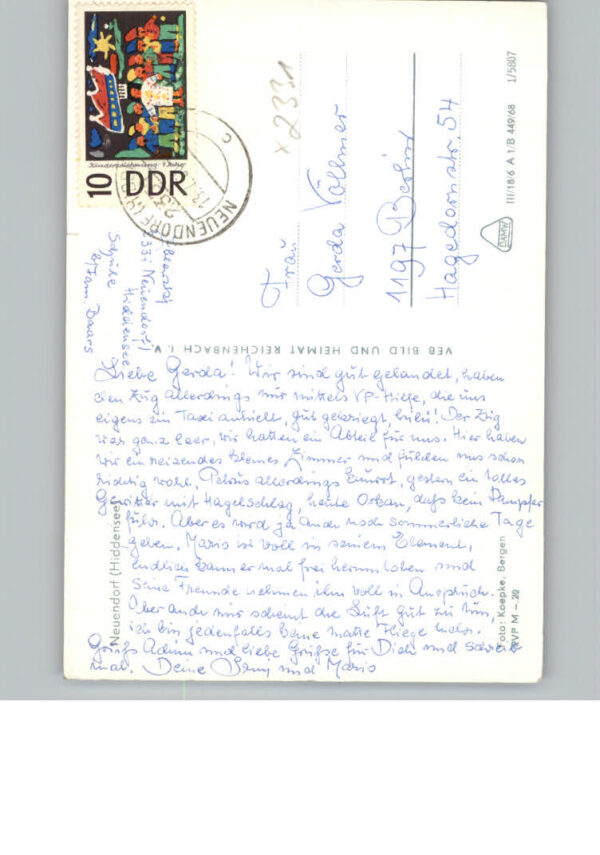 Kinderzeichnung
10 DDR
NEUENDORF
23
c
x 2331
Frau
Gerda Vollmer
1197 Berlin
Hagedornstr. 54
III/18/6 A 1/B 449/68 1/5807
DAMW
2331 Neuendorf/
Hiddensee
b/Fam Baars
VEB BILD UND HEIMAT REICHENBACH i. V.
Liebe Gerda! Wir sind gut gelandet, haben
den Zug allerdings nur mittels VP-Hilfe, die uns
eigens ein Taxi anhielt, gut gekriegt, hihi! Der Zug
war ganz leer, wir hatten ein Abteil für uns. Hier haben
wir ein reizendes kleines Zimmer und fühlen uns schon
richtig wohl. Petrus allerdings knurrt, gestern ein tolles
Gewitter mit Hagelschlag, heute Orkan, daß kein Dampfer
fuhr. Aber es wird ja auch noch sommerliche Tage
geben. Mario ist voll in seinem Element,
endlich kann er mal frei herumtoben und
seine Freunde nehmen ihn voll in Anspruch.
Aber auch mir scheint die Luft gut zu tun,
ich bin jedenfalls keine matte Fliege mehr.
Grüß Achim und liebe Grüße für Dich und schreib
mal. Deine und Mario
Neuendorf (Hiddensee)
Foto: Koepke, Bergen
EVP M -.20